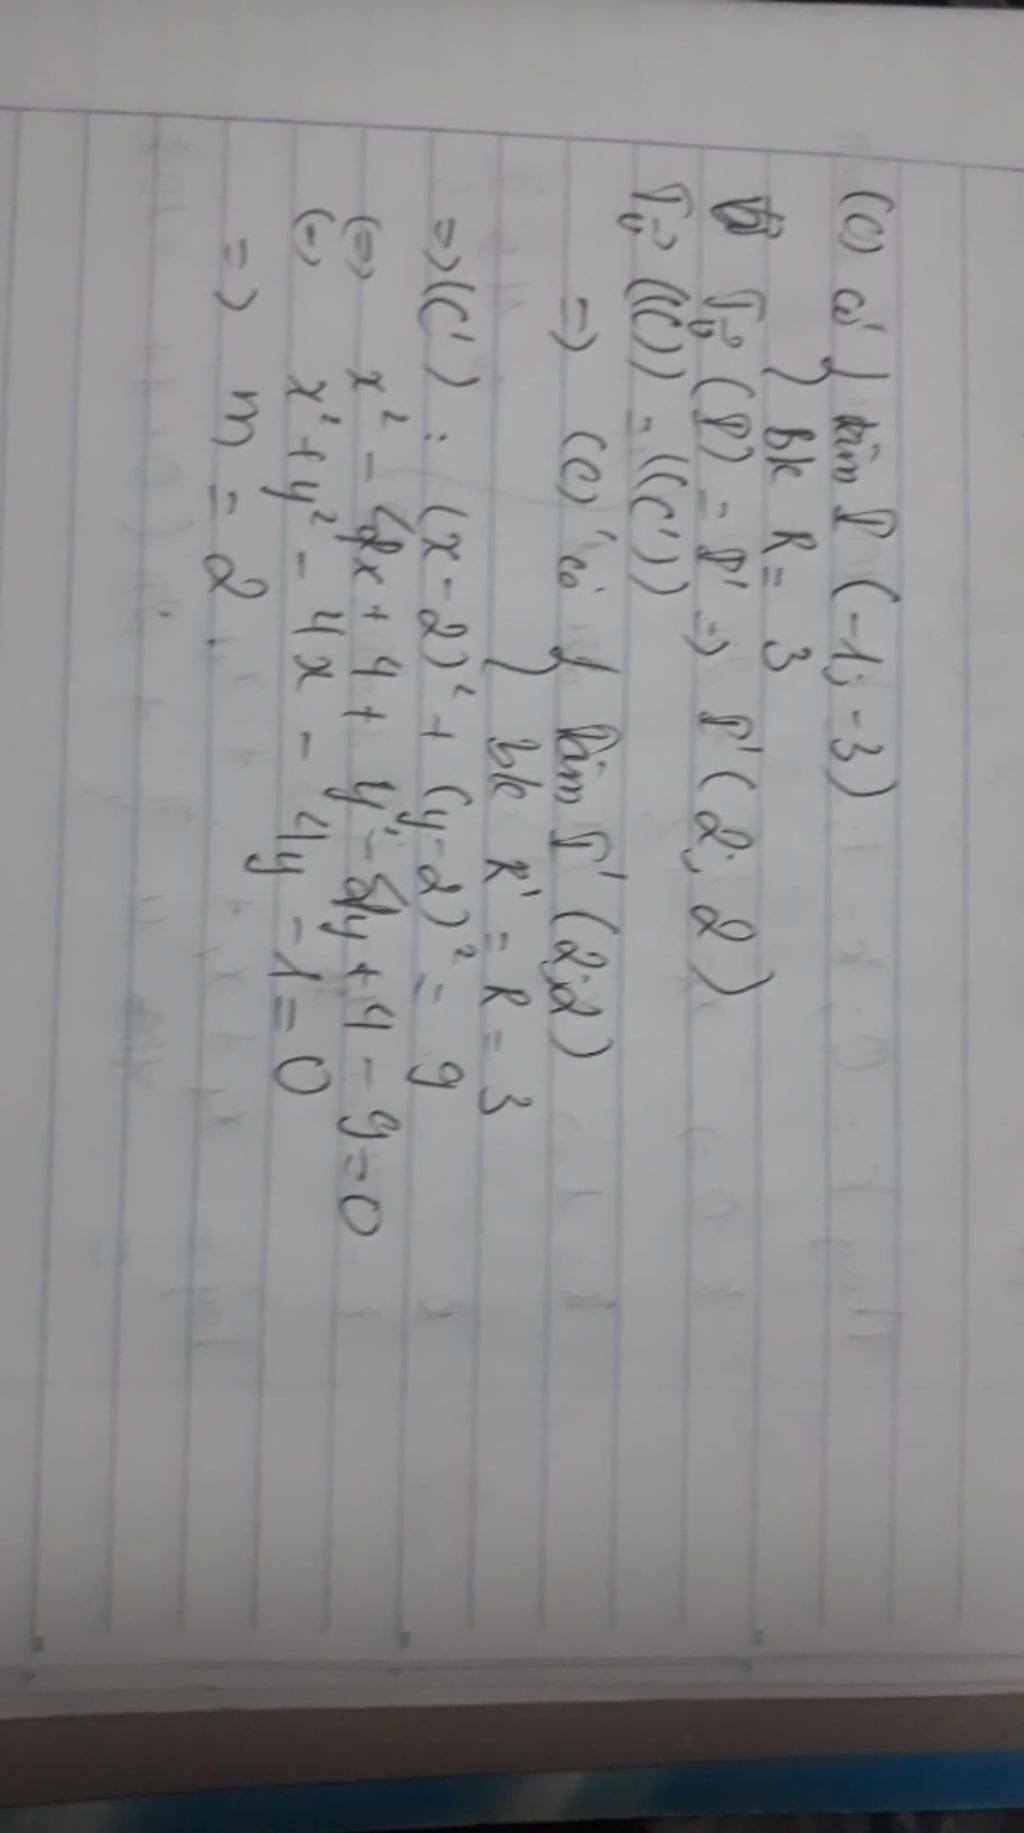 (C) có { tâm I (-1; -3)
} bk R = 3
Tv→ (I) = I' => I' (2; 2)
Tv→ ((C)) = ((C'))
=> (C)' có { tâm I' (2;2)
} bk R' = R = 3
=> (C') : (x-2)² + (y-2)² = 9
(=) x² - 4x + 4 + y² - 4y + 4 - 9 = 0
(=) x² + y² - 4x - 4y - 1 = 0
=> m = 2.